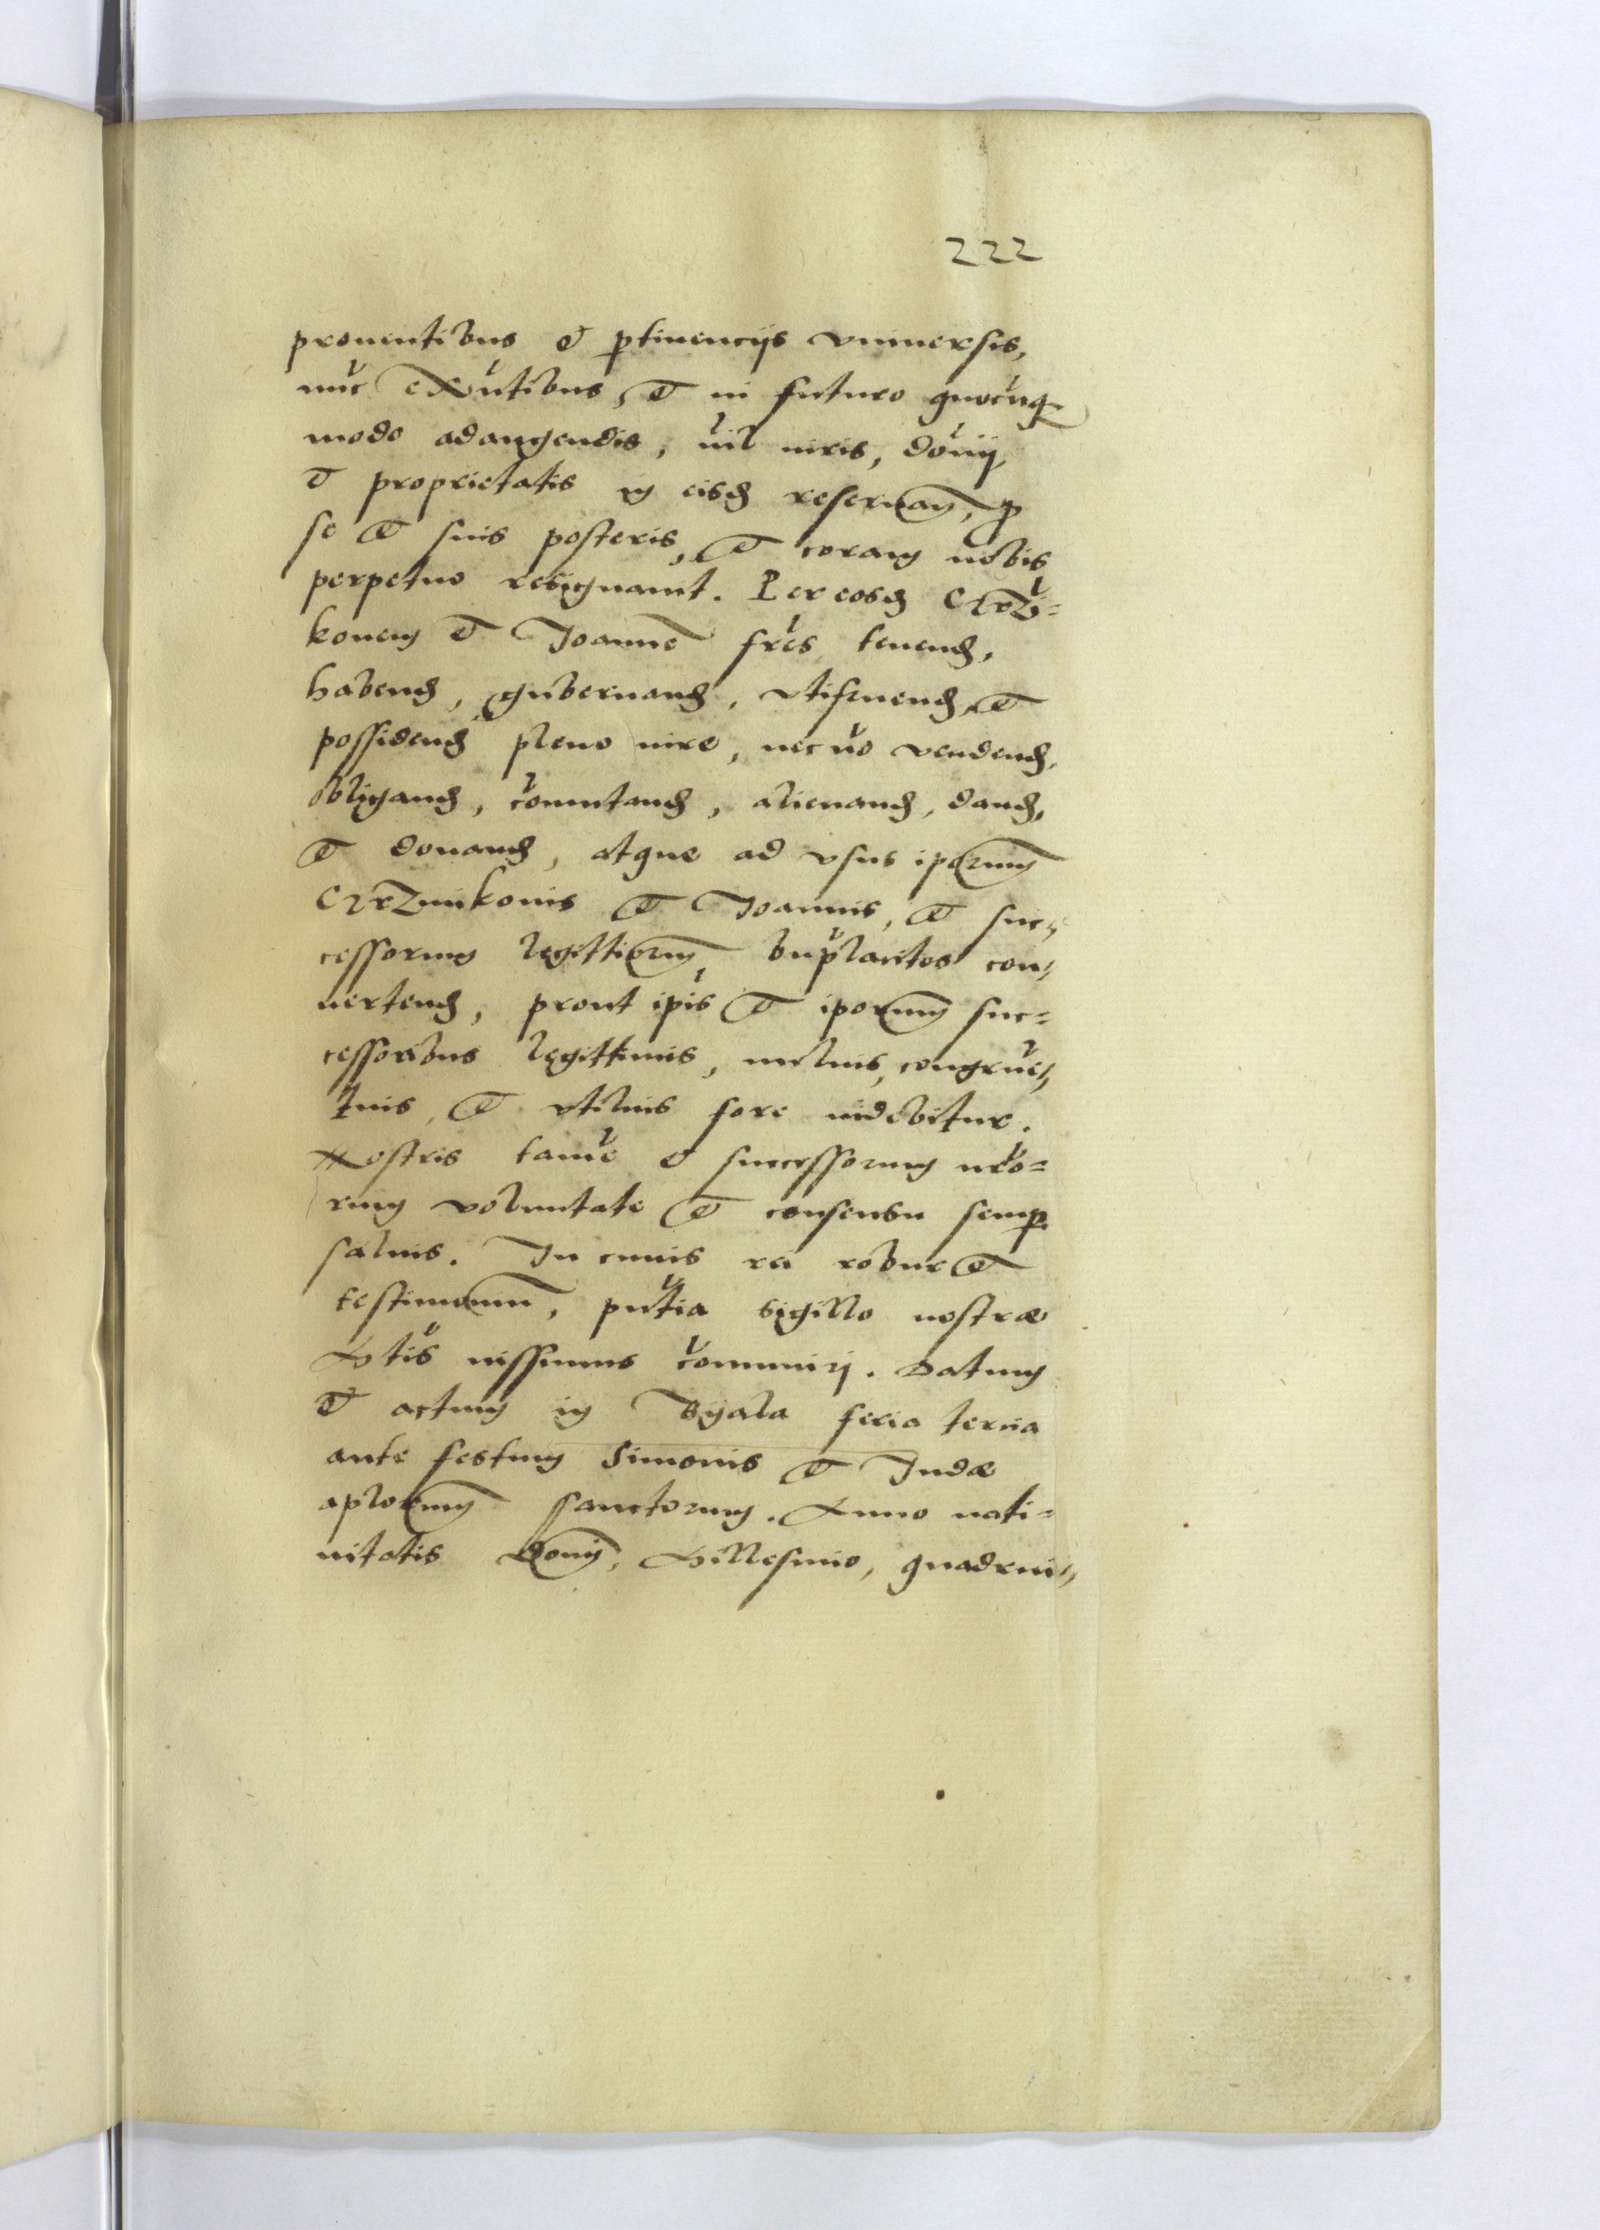 222
prouentibus et ptinencijs vniuersis,
nuc exñtibus, et in futuro quocuq
modo adaugendis, nil iuris, donij,
et proprietatis in eisd reseruan, p
se et suis posteris, et coram nobis
perpetuo resignauit. Per eosd Crzi=
konem et Joanne fres tenend,
habend, gubernand, vtifruend, et
possidend pleno iure, nec no vendend,
obligand, comutand, alienand, dand,
et donand, atque ad vsus iporum
Crznikonis et Joannis, et suc=
cessorum legittiorum, bnplacitos con=
uertend, prout ipis et iporum suc=
cessoribus legittimis, melius, congrue=
tius, et vtilius fore uidebitur.
Nostris tame et successorum nro=
rum voluntate et consensu semp
saluis. In cuius rei robur et
testimonium, pntia sigillo nostrae
Mtis iussimus comuniri. Datum
et actum in Byala feria tercia
ante festum Simonis et Judae
aplorum sanctorum. Anno nati=
uitatis Domi, Millesimo, quadrin=